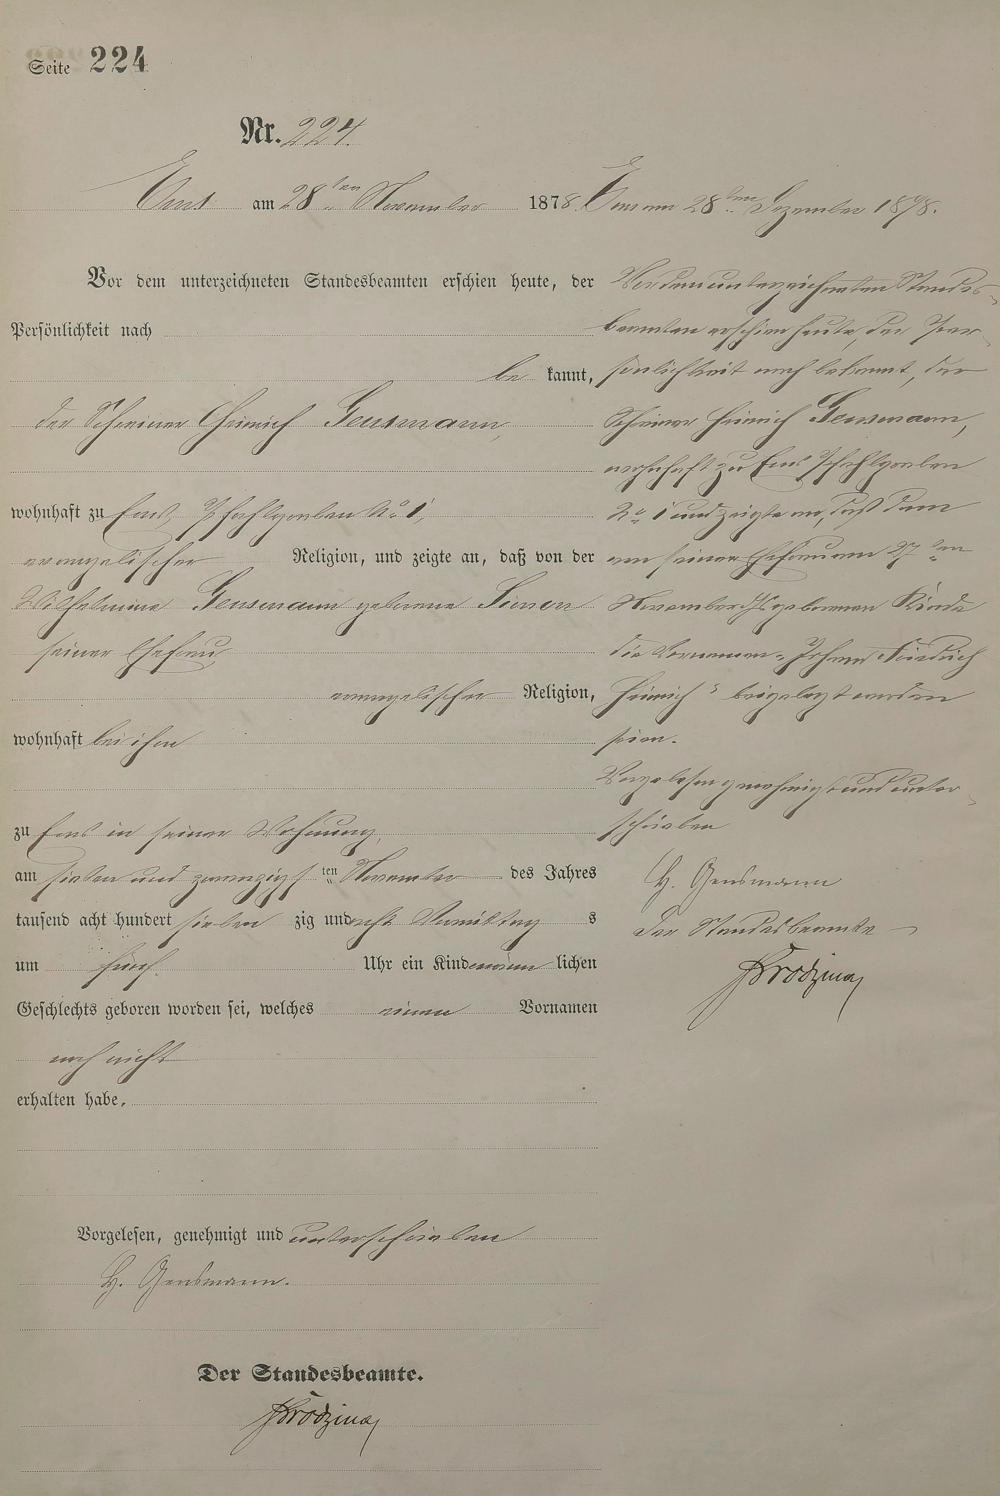 Seite 224
Nr. 224.
Ems am 28ten November 1878.
Vor dem unterzeichneten Standesbeamten erschien heute, der
Persönlichkeit nach
be kannt,
der Schreiner Heinrich Gensmann,
wohnhaft zu Ems, Pfahlgraben No 1,
evangelischer Religion, und zeigte an, daß von der
Wilhelmine Gensmann geborene Simon
seiner Ehefrau,
evangelischer Religion,
wohnhaft bei ihm
zu Ems in seiner Wohnung,
am sieben und zwanzigsten November des Jahres
tausend acht hundert sieben zig und acht Vormittag s
um fünf Uhr ein Kind männlichen
Geschlechts geboren worden sei, welches einen Vornamen
noch nicht
erhalten habe.
Vorgelesen, genehmigt und unterschrieben
H. Gensmann.
Der Standesbeamte.
Ems am 28ten Dezember 1878.
Vor dem unterzeichneten Standes-
beamten erschien heute, der Per-
sönlichkeit nach bekannt, der
Schreiner Heinrich Gensmann,
wohnhaft zu Ems Pfahlgraben
No 1 und zeigte an, daß dem
von seiner Ehefrau am 27ten
November geborenen Kinde
die Vornamen "Johann Friedrich
Heinrich" beigelegt worden
seien.
Vorgelesen genehmigt und unter-
schrieben
H. Gensmann
Der Standesbeamte